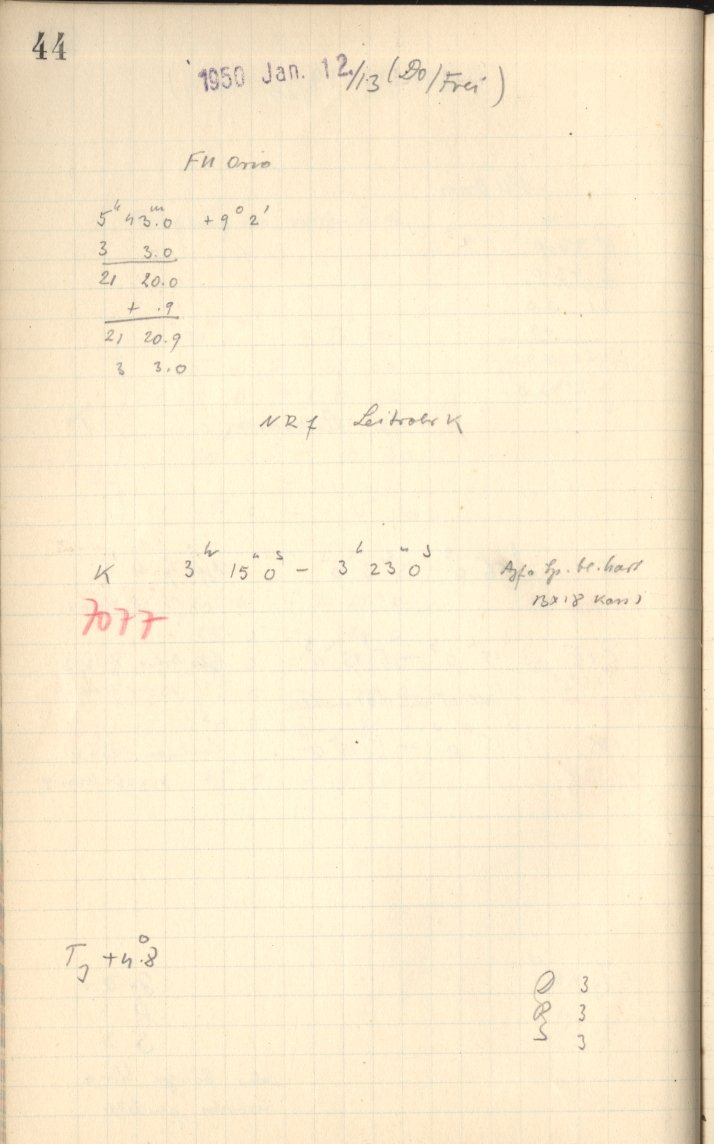 44
1950 Jan. 12./13 (Do/Frei)
FU Orio
5ʰ 43ᵐ.0 +9° 2'
3 3.0
21 20.0
+ .9
21 20.9
3 3.0
NRf Leitrohr K
K 3ʰ 15ᵐ 0ˢ – 3ʰ 23ᵐ 0ˢ Agfa Sp. bl. hart
7077 13x18 Kass 1
T +4°.8
D 3
R 3
S 3